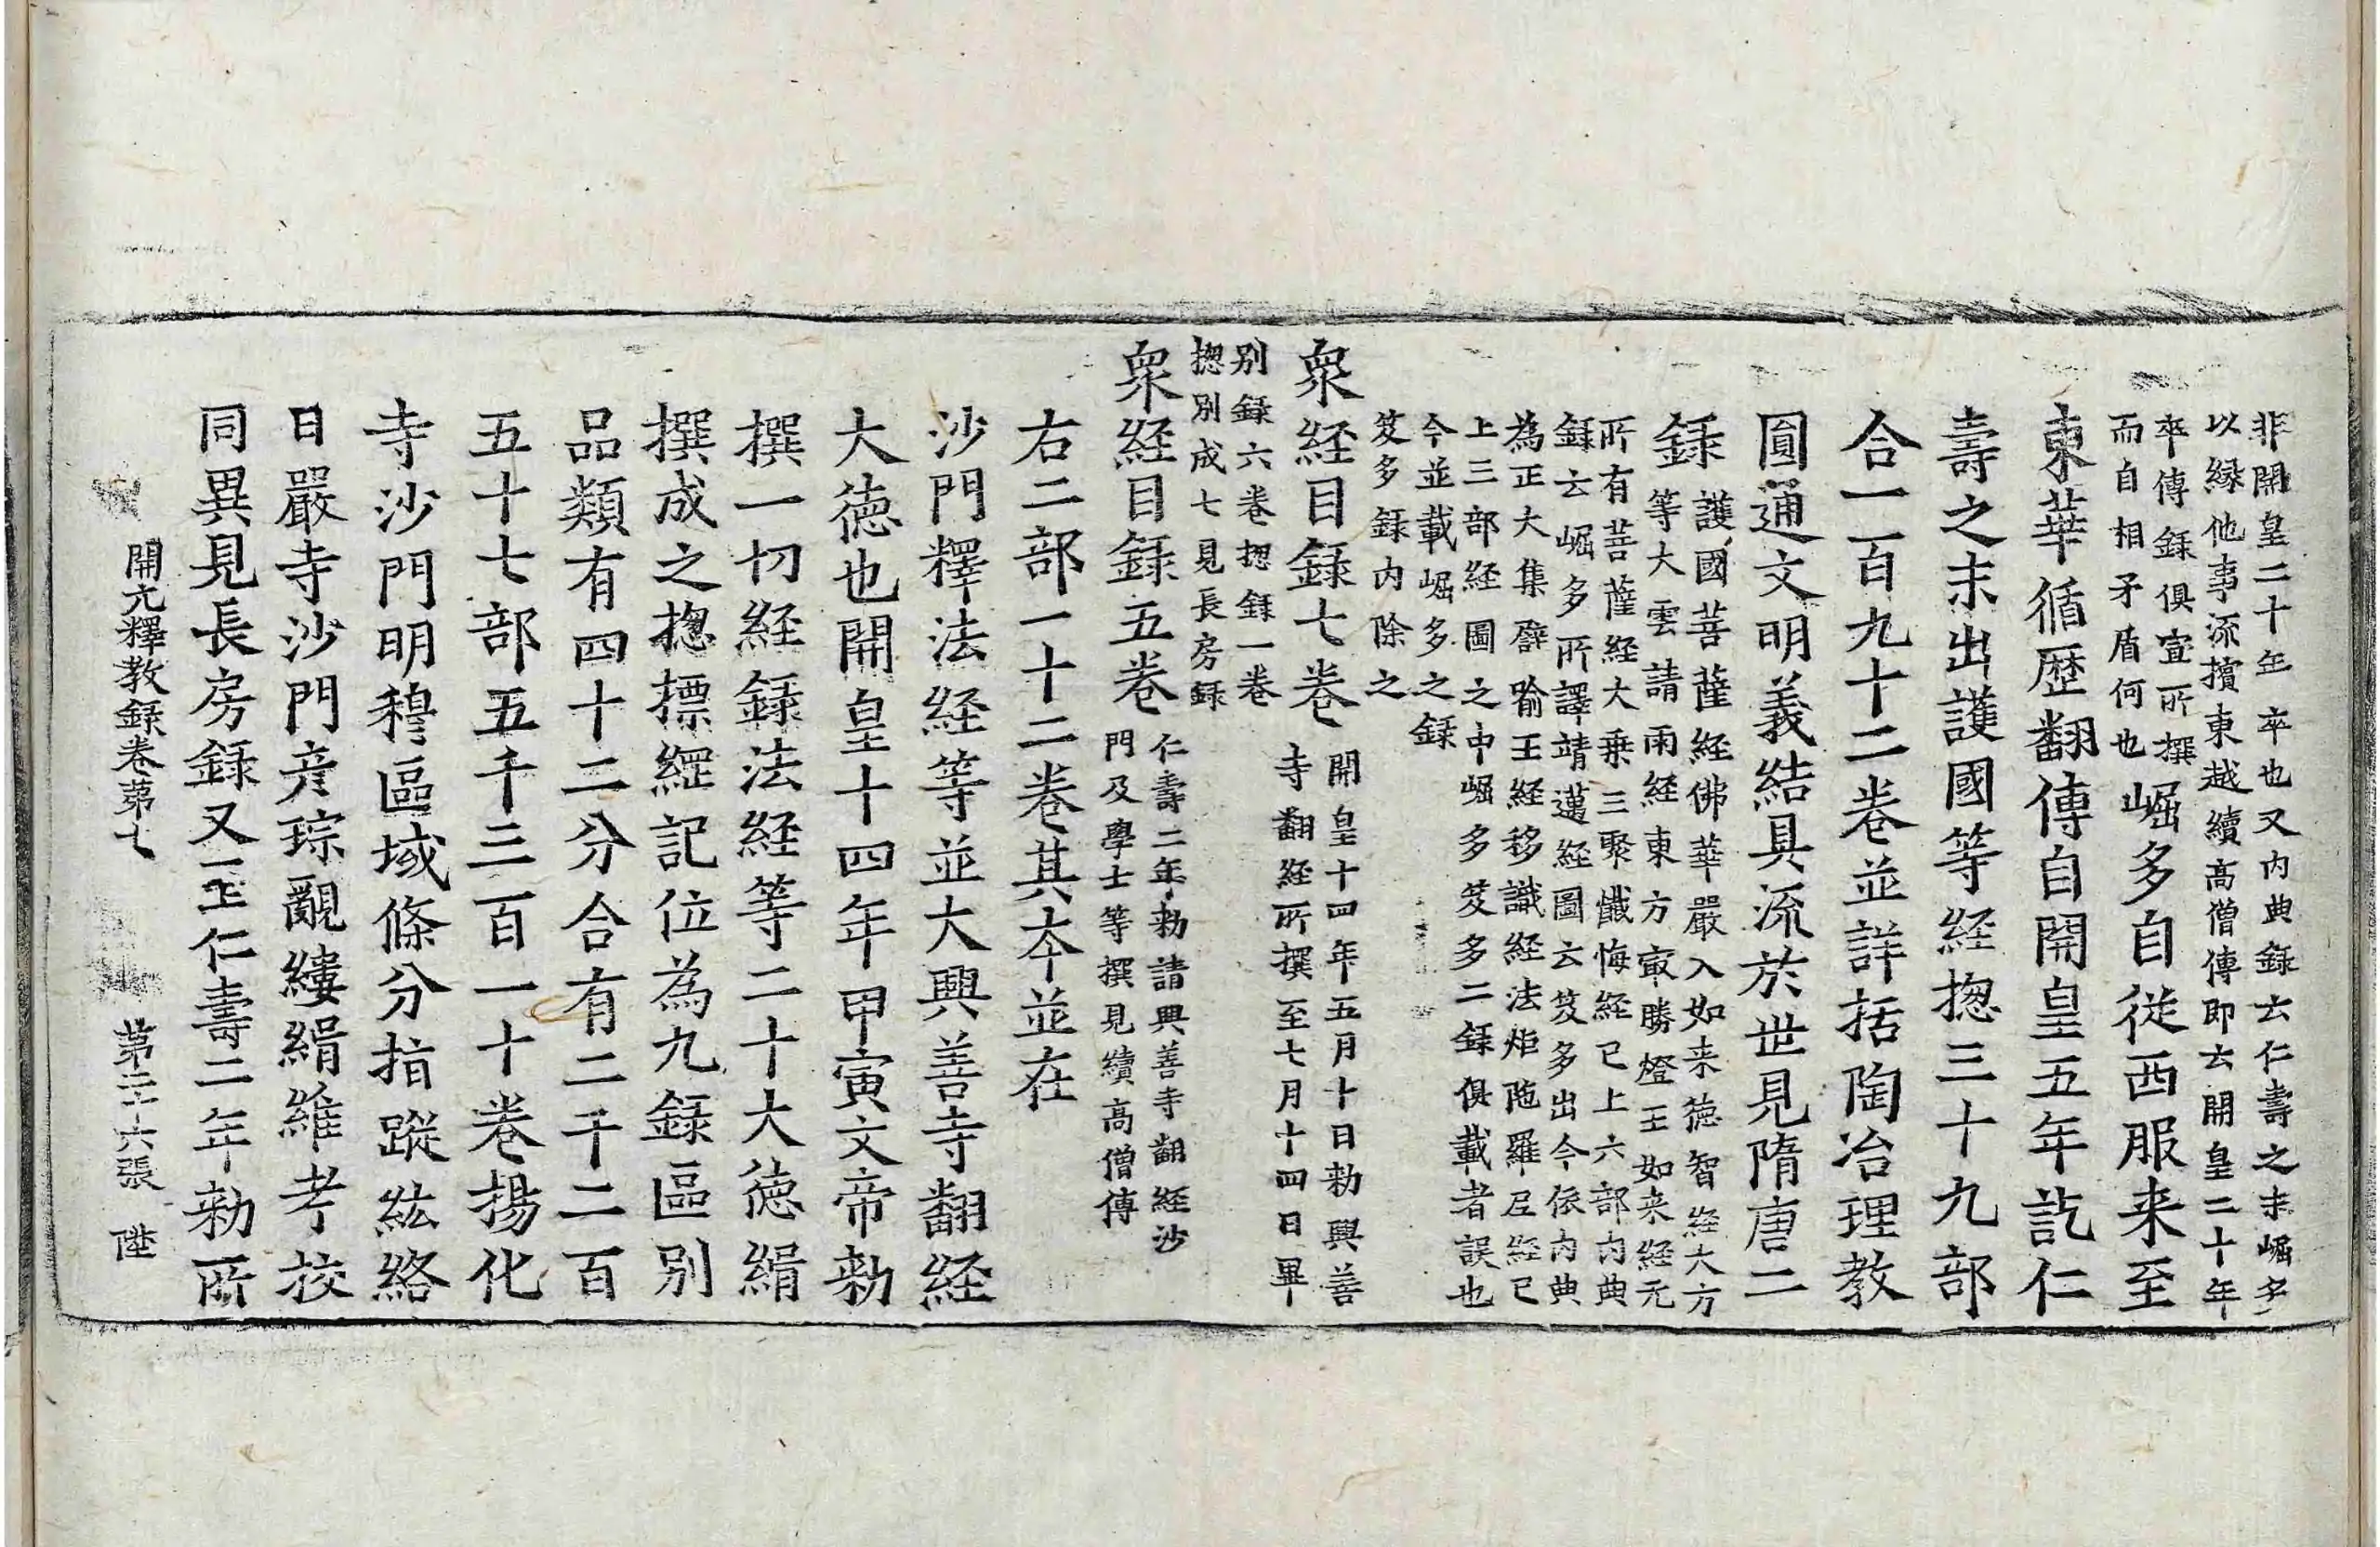 非開皇二十年卒也又内典録云仁壽之末崛多
以緣他事流擯東越續高僧傳即云開皇二十年
卒傳録俱宣所撰
而自相矛盾何也
崛多自從西服来至
東華循歴翻傳自開皇五年訖仁
壽之末出護國等経揔三十九部
合一百九十二巻並詳括陶冶理教
圓通文明義結具流於世見隋唐二
録
護國菩薩経佛華嚴入如来徳智経大方
等大雲請雨経東方冣勝燈王如来経元
所有菩薩経大乗三聚懺悔経已上六部内典
録云崛多所譯靖邁経圖云笈多出今依内典
為正大集譬喻王経移識経法炬陁羅尼経已
上三部経圖之中崛多笈多二録俱載者誤也
今並載崛多之録
笈多録内除之
衆経目録七巻
開皇十四年五月十日勑興善
寺翻経所撰至七月十四日畢
别録六巻揔録一巻
揔别成七見長房録
衆経目録五巻
仁壽二年勑請興善寺翻経沙
門及學士等撰見續高僧傳
右二部一十二巻其夲並在
沙門釋法経等並大興善寺翻経
大徳也開皇十四年甲寅文帝勑
撰一切経録法経等二十大徳緝
撰成之揔摽綱記位為九録區别
品類有四十二分合有二千二百
五十七部五千三百一十巻揚化
寺沙門明穆區域條分指蹤絃絡
日嚴寺沙門彦琮覼縷緝維考挍
同異見長房録又至仁壽二年勑所
開元釋教録卷苐七 苐二十六張 陞